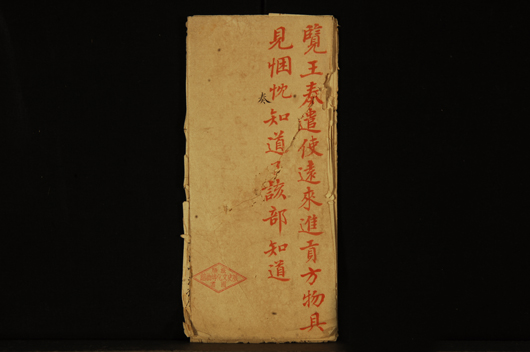 覽王奏遣使遠來進貢方物具
見悃忱知道了該部知道
奏